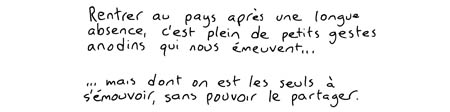 Rentrer au pays après une longue
absence, c'est plein de petits gestes
anodins qui nous émeuvent...
... mais dont on est les seuls à
s'émouvoir, sans pouvoir le partager.